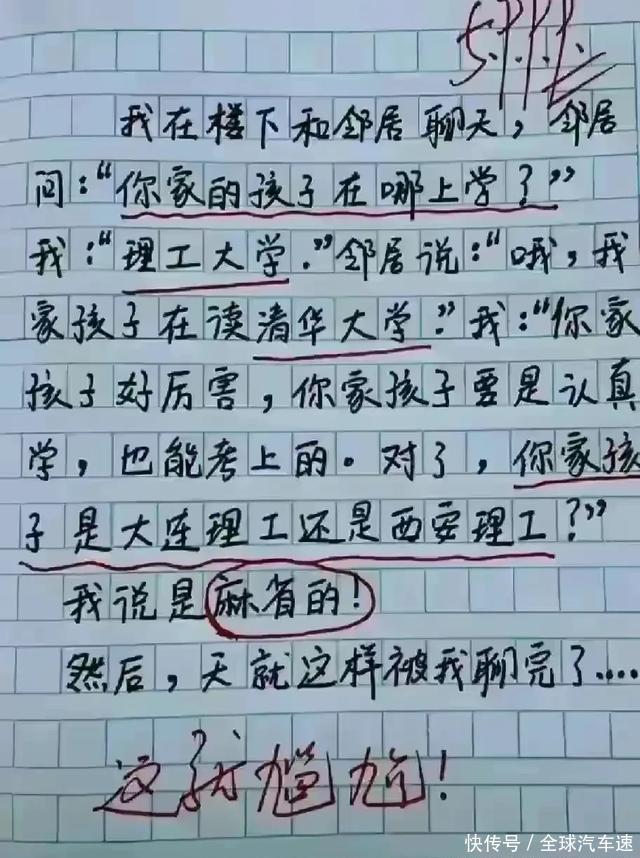 我在楼下和邻居聊天，邻居
问：“你家的孩子在哪上学？”
我：“理工大学.”邻居说：“哦，我
家孩子在读清华大学.”我：“你家
孩子好厉害，你家孩子要是认真
学，也能考上的。对了，你家孩
子是大连理工还是西安理工？”
我说是麻省的！
然后，天就这样被我聊完了....
这就尴尬！
快传号／全球汽车速